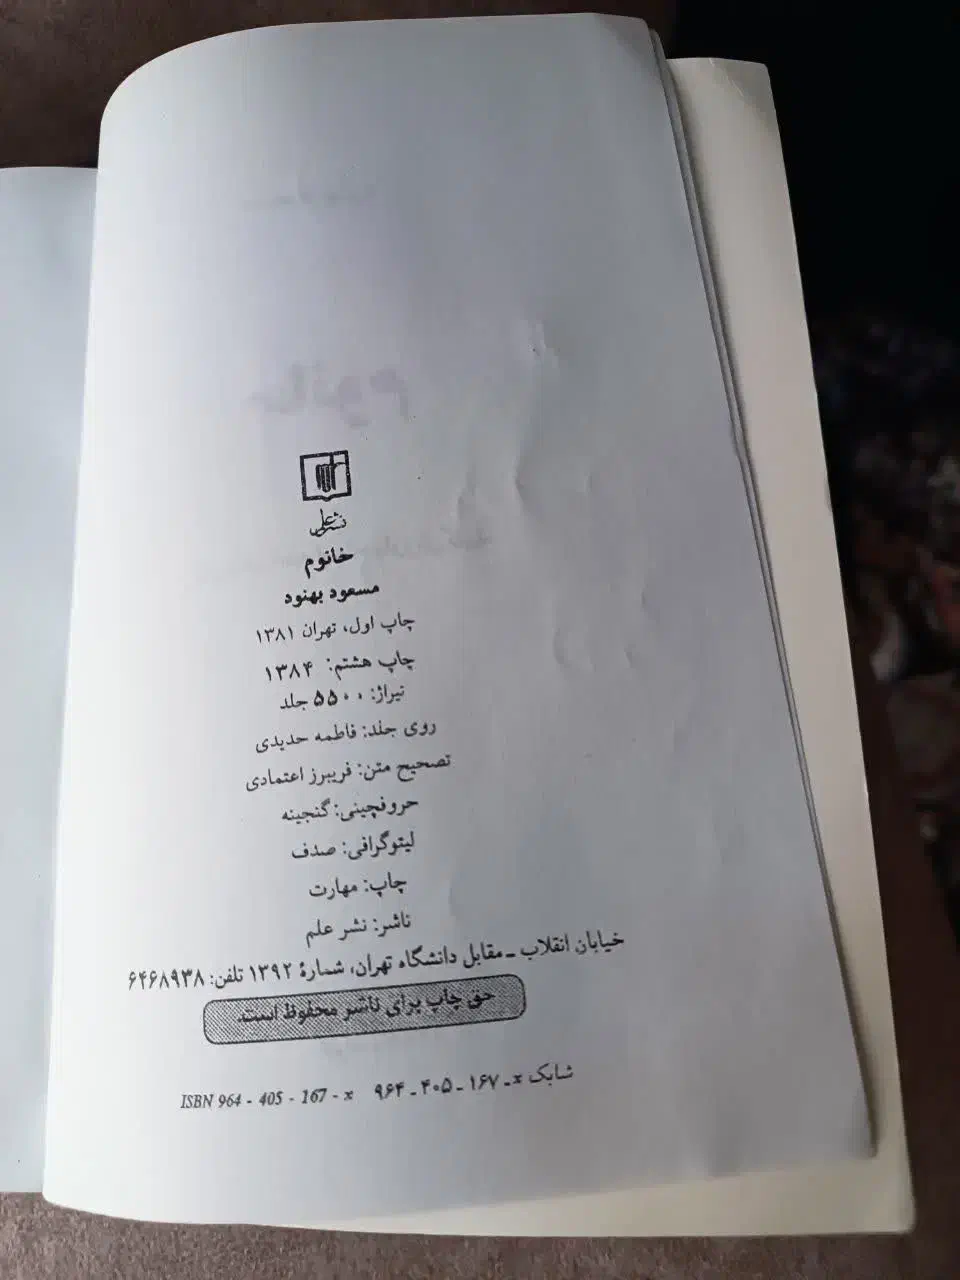 نشر علم
خانوم
مسعود بهنود
چاپ اول، تهران ۱۳۸۱
چاپ هشتم: ۱۳۸۴
تیراژ: ۵۵۰۰ جلد
روی جلد: فاطمه حدیدی
تصحیح متن: فریبرز اعتمادی
حروفچینی: گنجینه
لیتوگرافی: صدف
چاپ: مهارت
ناشر: نشر علم
خیابان انقلاب ـ مقابل دانشگاه تهران، شمارهٔ ۱۳۹۲ تلفن: ۶۴۶۸۹۳۸
حق چاپ برای ناشر محفوظ است.
شابک x ـ ۱۶۷ ـ ۴۰۵ ـ ۹۶۴ ISBN 964 - 405 - 167 - x